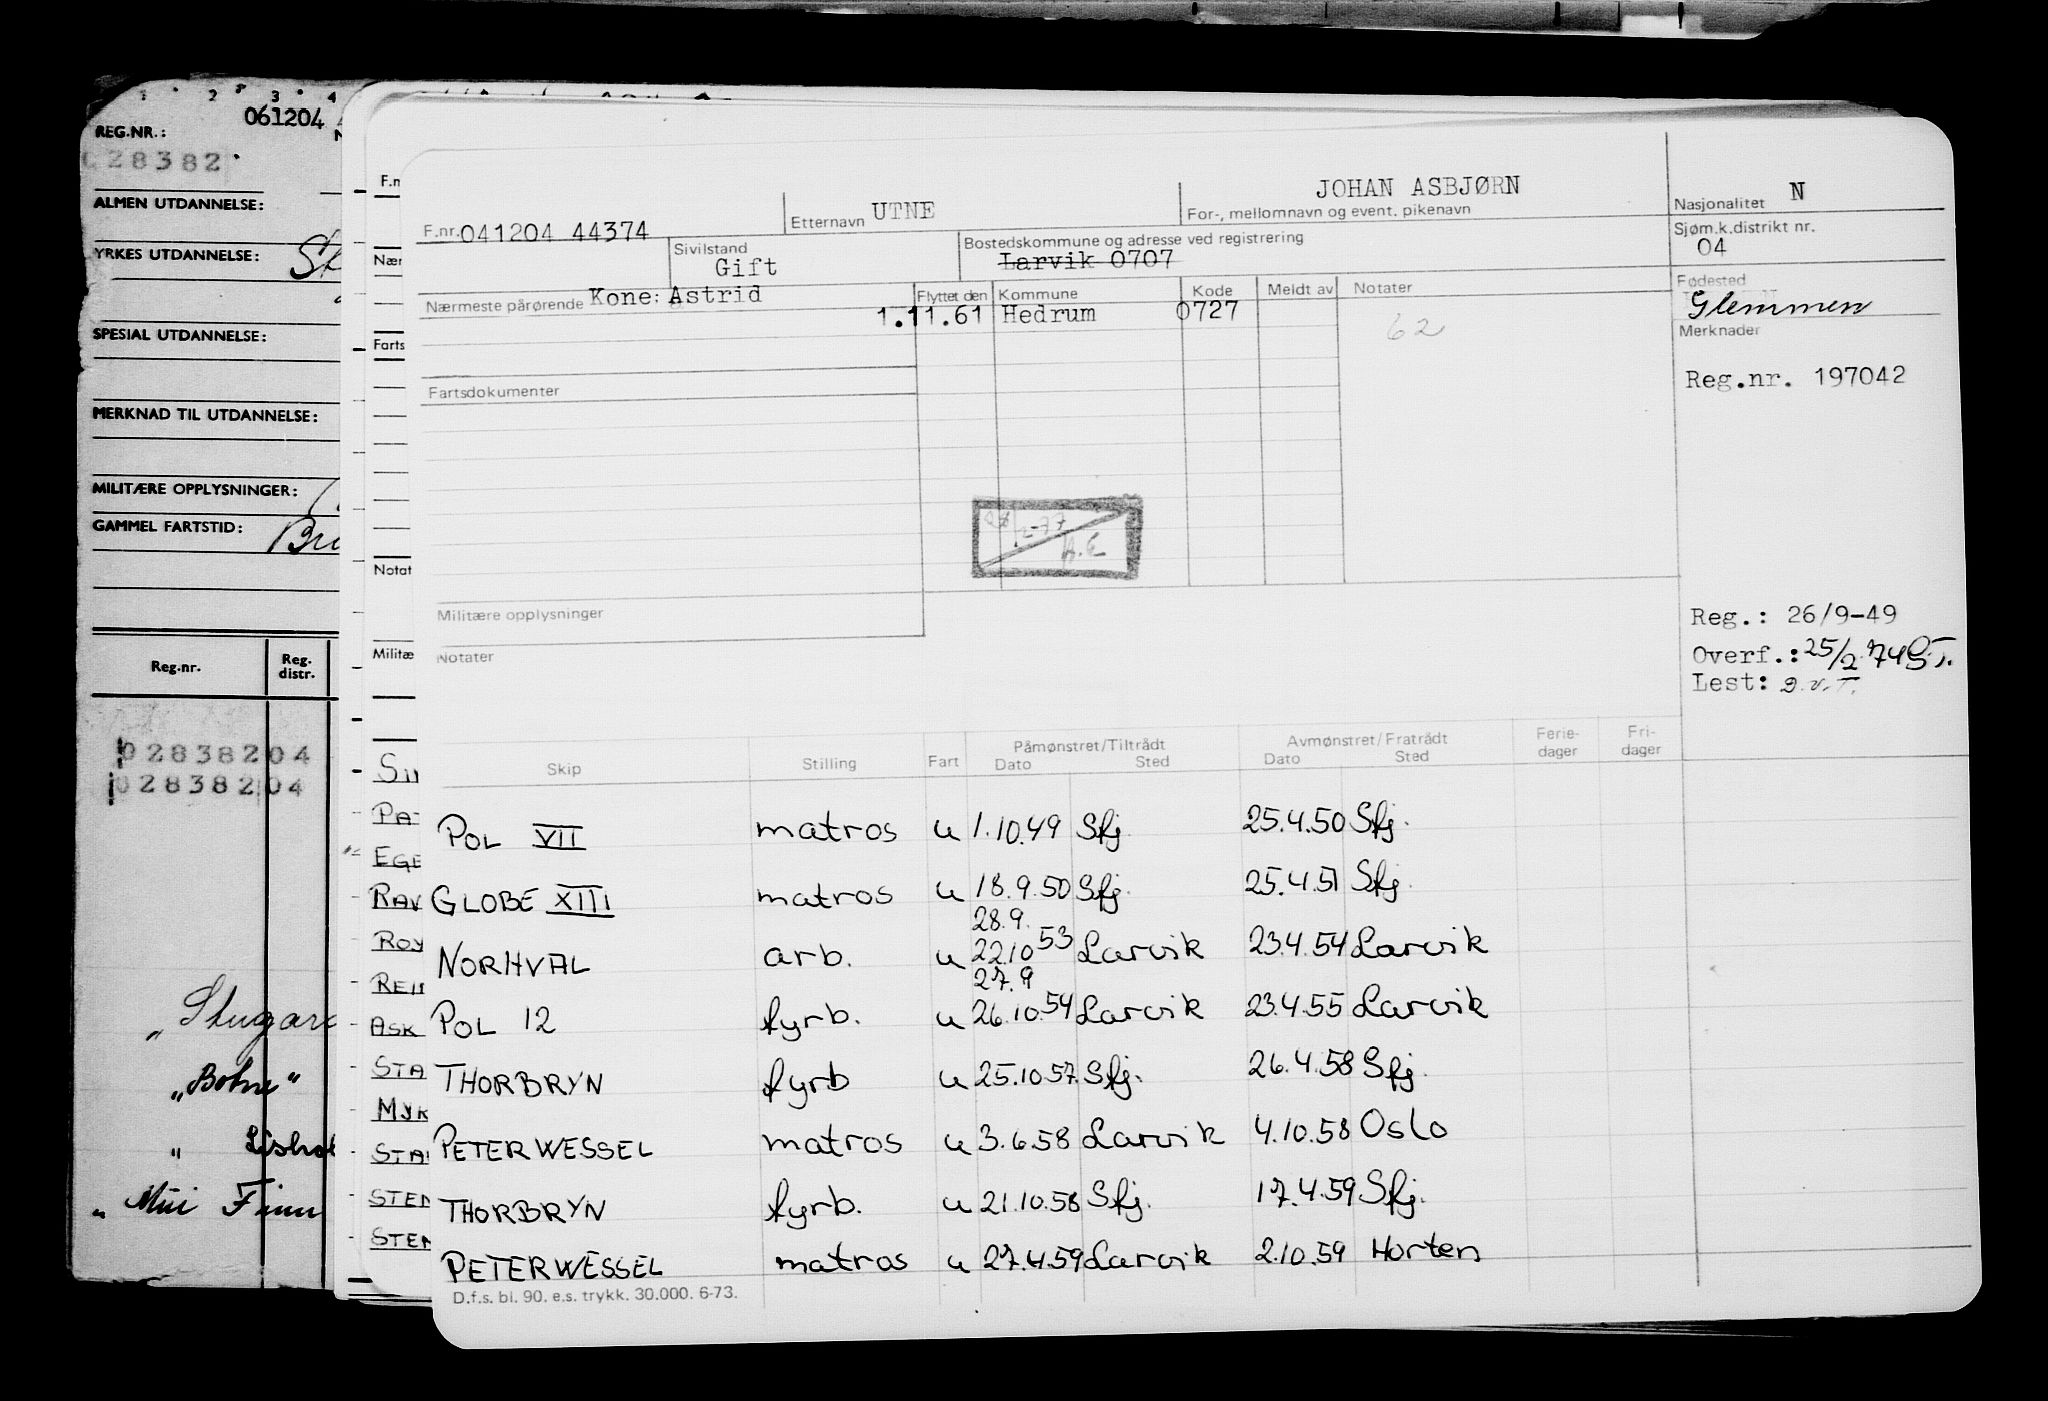 1 2 3 4
061204
REG.NR.:
028382
ALMEN UTDANNELSE:
YRKES UTDANNELSE:
SPESIAL UTDANNELSE:
MERKNAD TIL UTDANNELSE:
MILITÆRE OPPLYSNINGER:
GAMMEL FARTSTID:
Reg.nr. Reg. distr.
02838204
02838204
"Bohne"
" Mui Finn
F.n
Nær
Farts
Notat
Militæ
PA
EGE
RAV
ROY
ASK
STA
MYK
STA
STEN
STEN
F.nr. 041204 44374 Etternavn UTNE JOHAN ASBJØRN
For-, mellomnavn og event. pikenavn
Nasjonalitet N
Sjøm.k.distrikt nr.
04
Sivilstand
Gift
Bostedskommune og adresse ved registrering
Larvik 0707
Fødested
Glemmen
Nærmeste pårørende Kone: Astrid
Flyttet den Kommune Kode Meldt av Notater
1.11.61 Hedrum 0727 62
Merknader
Reg.nr. 197042
Fartsdokumenter
2-77
A.E
Militære opplysninger
Notater
Reg.: 26/9-49
Overf.: 25/2.74 S.T.
Lest: D.V.T.
Skip Stilling Fart Påmønstret/Tiltrådt Dato Sted Avmønstret/Fratrådt Dato Sted Ferie-dager Fri-dager
POL VII matros u 1.10.49 Sfj. 25.4.50 Sfj.
GLOBE XIII matros u 18.9.50 Sfj. 25.4.51 Sfj.
28.9.
NORHVAL arb. u 22.10 53 Larvik 23.4.54 Larvik
27.9
POL 12 fyrb. u 26.10.54 Larvik 23.4.55 Larvik
THORBRYN fyrb u 25.10.57 Sfj. 26.4.58 Sfj.
PETER WESSEL matros u 3.6.58 Larvik 4.10.58 Oslo
THORBRYN fyrb. u 21.10.58 Sfj. 17.4.59 Sfj.
PETER WESSEL matros u 27.4.59 Larvik 2.10.59 Horten
D.f.s. bl. 90. e.s. trykk. 30.000. 6-73.